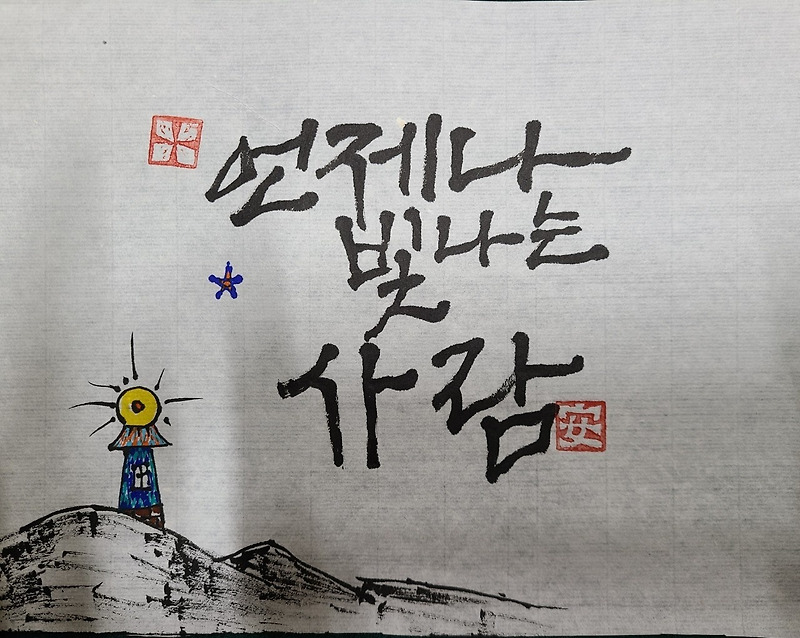 언제나
빛나는
사람
安